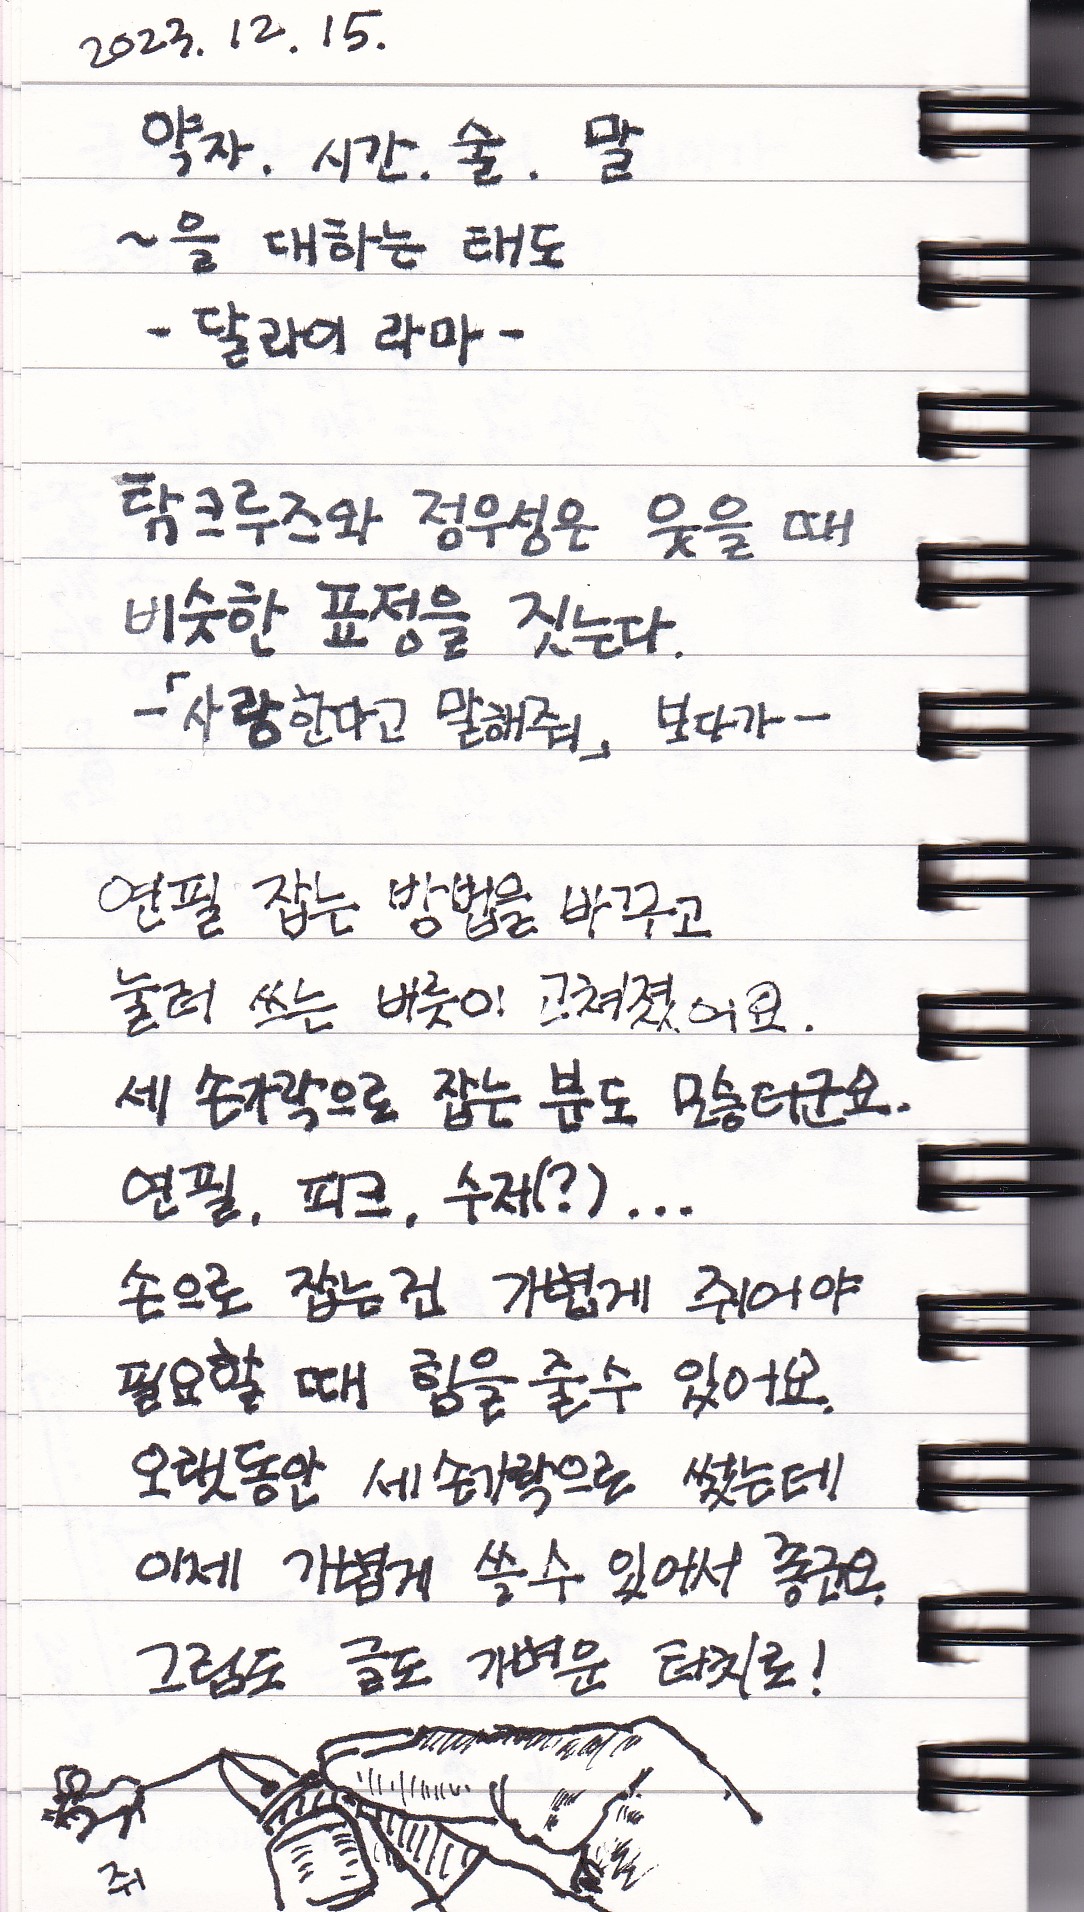 2023. 12. 15.
약자. 시간. 술. 말
~을 대하는 태도
- 달라이 라마 -
탐크루즈와 정우성은 웃을 때
비슷한 표정을 짓는다.
-「사랑한다고 말해줘」 보다가-
연필 잡는 방법을 바꾸고
눌러 쓰는 버릇이 고쳐졌어요.
세 손가락으로 잡는 분도 많더군요.
연필, 피크, 수저(?)...
손으로 잡는건 가볍게 쥐어야
필요할 때 힘을 줄 수 있어요.
오랫동안 세 손가락으로 썼는데
이제 가볍게 쓸 수 있어서 좋군요.
그림도 글도 가벼운 터치로!
쥐